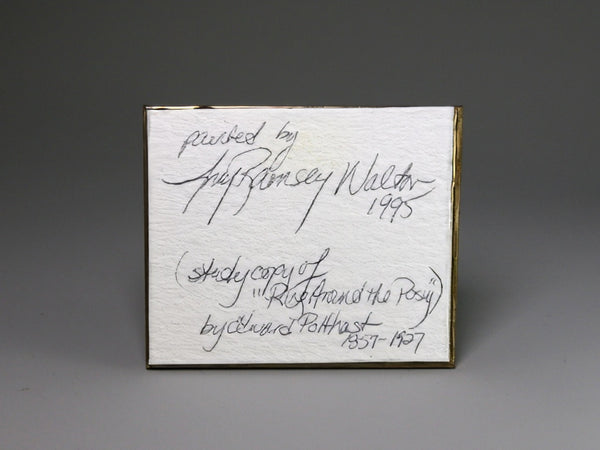 painted by
Ramsey Walton
1995
(study copy of
"Ring Around the Posy")
by Edward Potthast
1857-1927